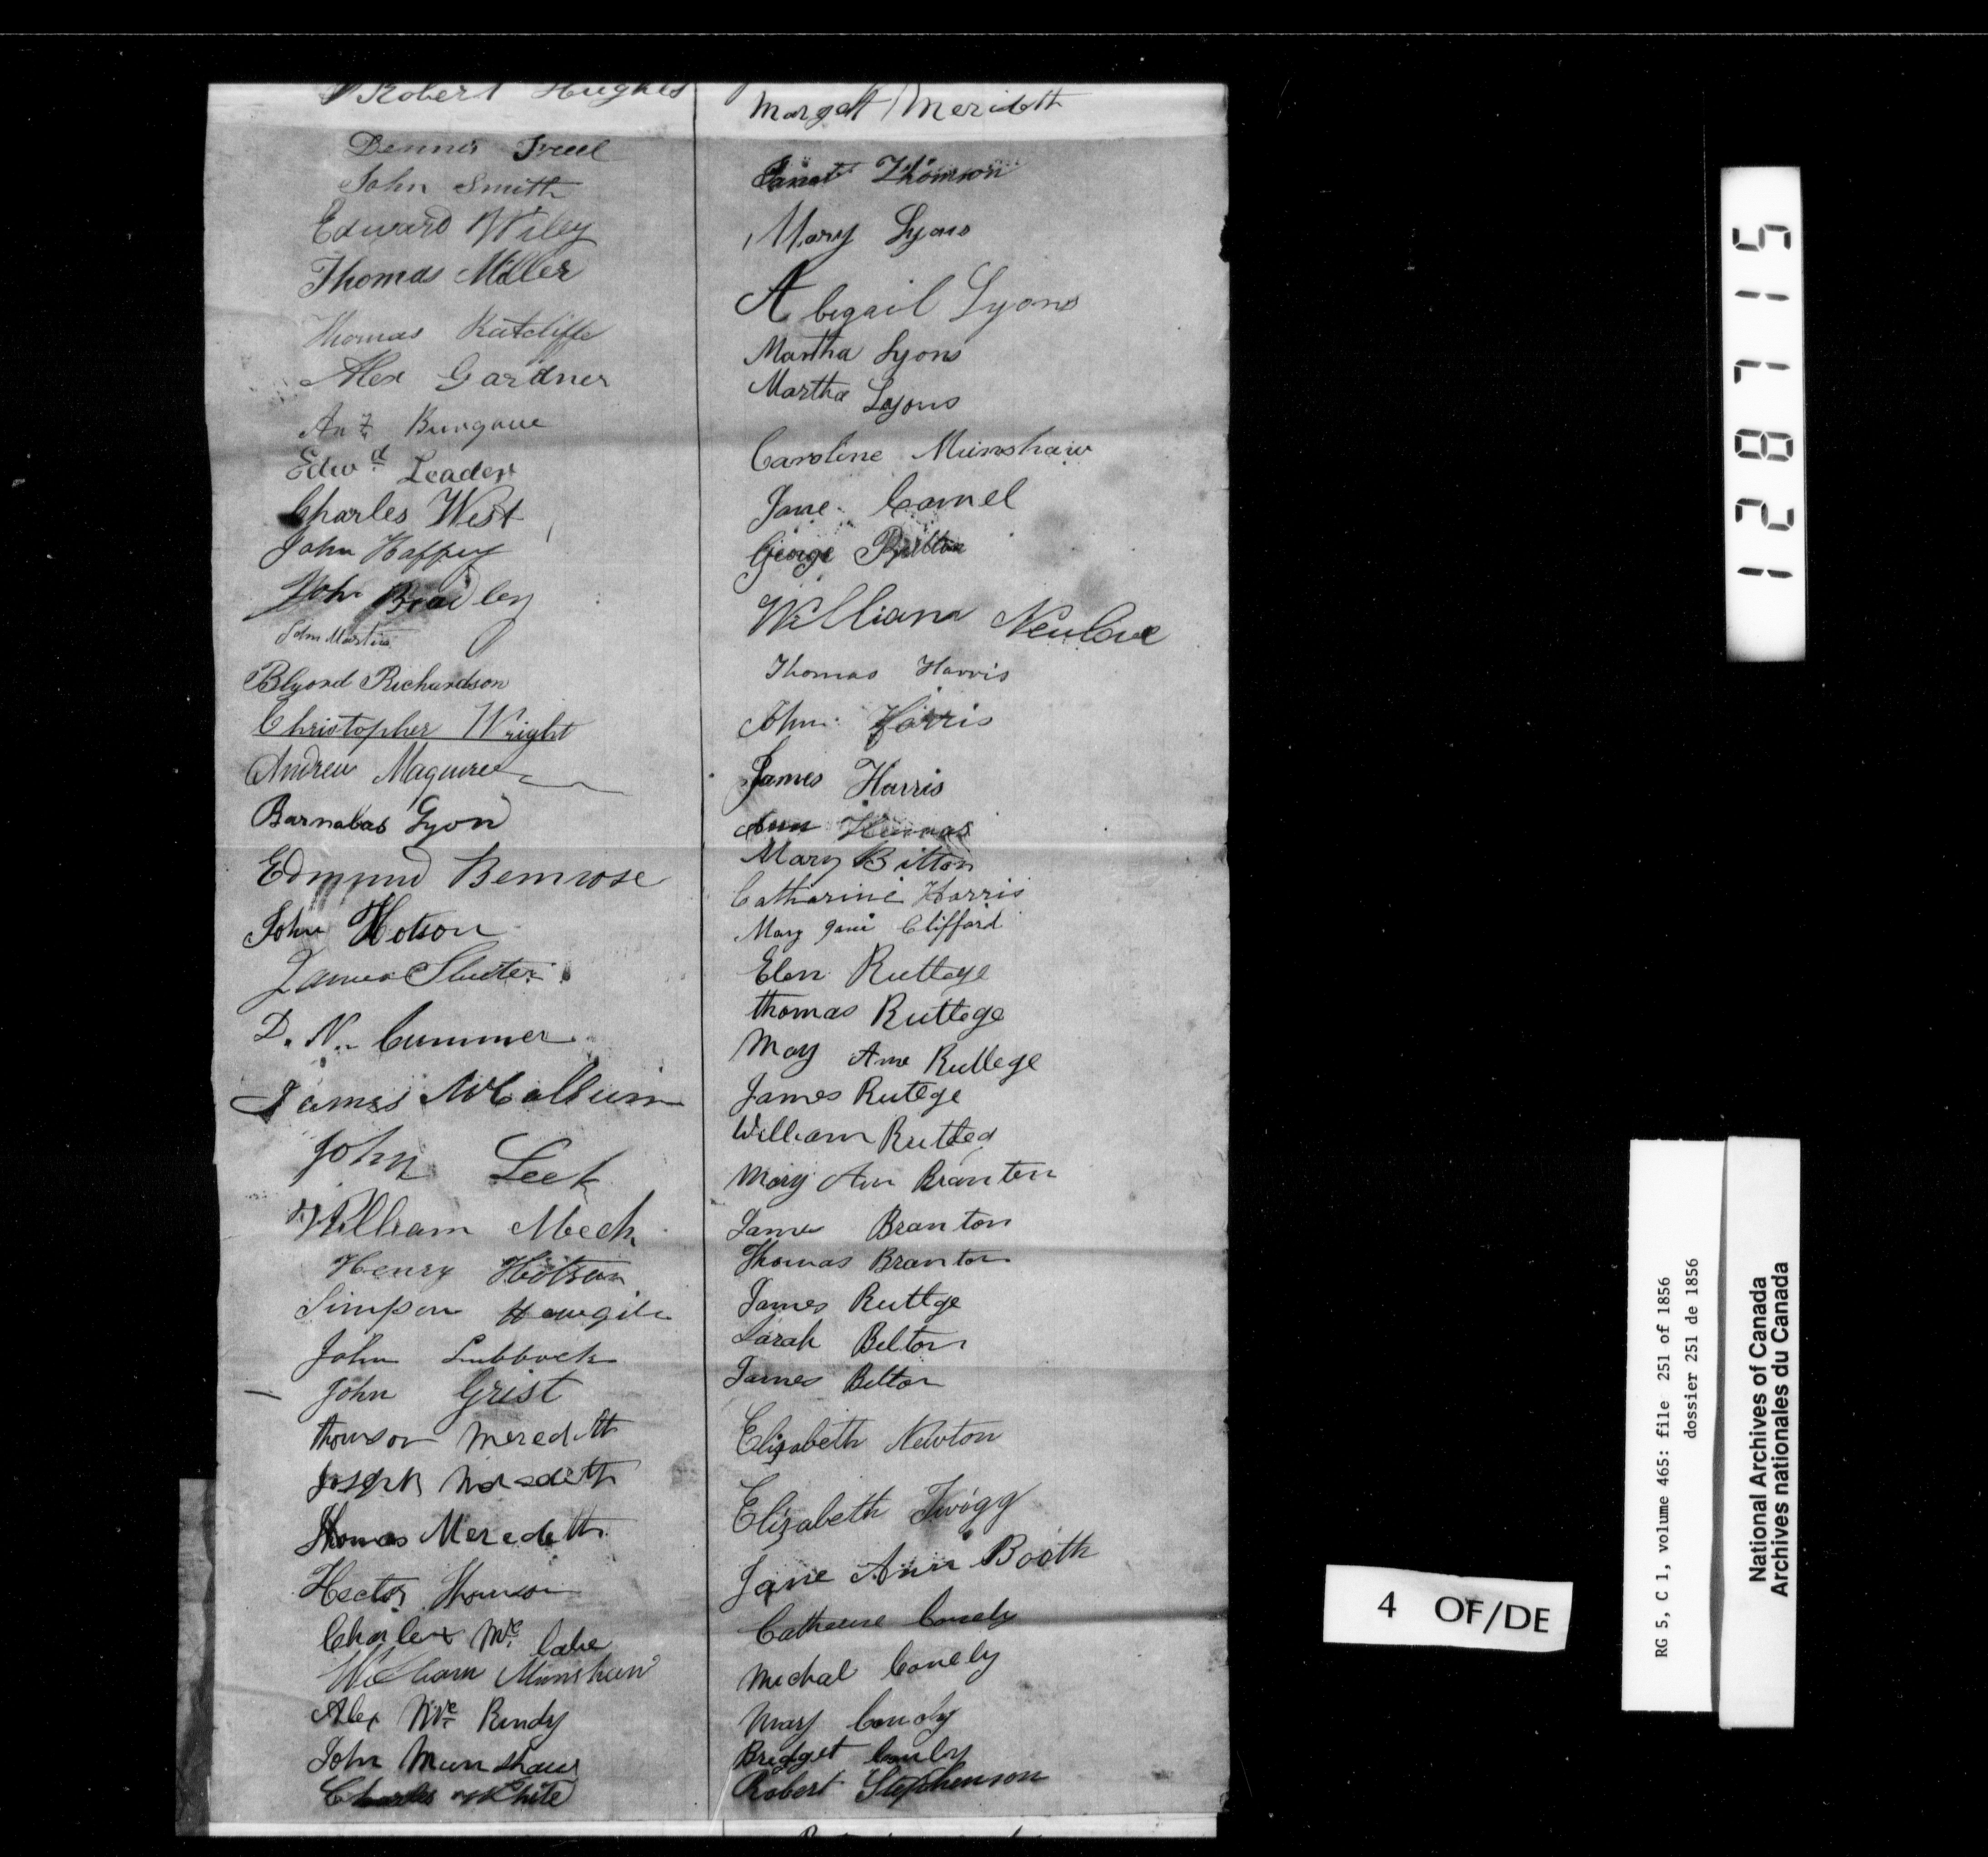 Robert Hughes
Dennis
John Smith
Edward Wiley
Thomas Miller
Thomas Ratcliffe
Alex Gardner
Edwd Leader
Charles West
John Haffey
John Bradley
John Martin
Blyord Richardson
Christopher Wright
Andrew Maguire
Barnabas Lyon
Edmund Bemrose
John Hotson
James
D. N. Cummer
James McCallum
John Leek
William Meek
Henry Hotson
Simpson
John Lubbock
John Grist
Thomson Meredith
Joseph Meredith
Thomas Meredeth
Hector Thomson
Charles Mc Cabe
William Munshaw
Alex Mc Rindy
John Munshaw
Charles White
Margatt Merideth
Janet Thomson
Mary Lyons
Abigail Lyons
Martha Lyons
Martha Lyons
Caroline Munshaw
Jane Camel
George
William Newlove
Thomas Harris
John Harris
James Harris
Ann
Mary Bitton
Catharine Harris
Mary Jane Clifford
Elen Ruttege
thomas Ruttege
May Ame Ruttege
James Rutege
William Rutteg
Mary Ann Branten
James Branton
Thomas Branton
James Ruttge
Sarah Belton
James Belton
Elizabeth Newton
Elizabeth Twigg
Jane Ann Booth
Catherine Conely
Michal Conely
Mary Conoly
Bridget Conly
Robert Stephenson
128715
4 OF/DE
RG 5, C 1, volume 465: file 251 of 1856
dossier 251 de 1856
National Archives of Canada
Archives nationales du Canada